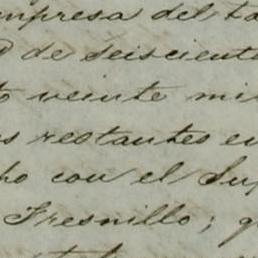 mpresa del ta
de seisciento
veinte mi
s restantes en
ho con el Sup
Fresnillo; q